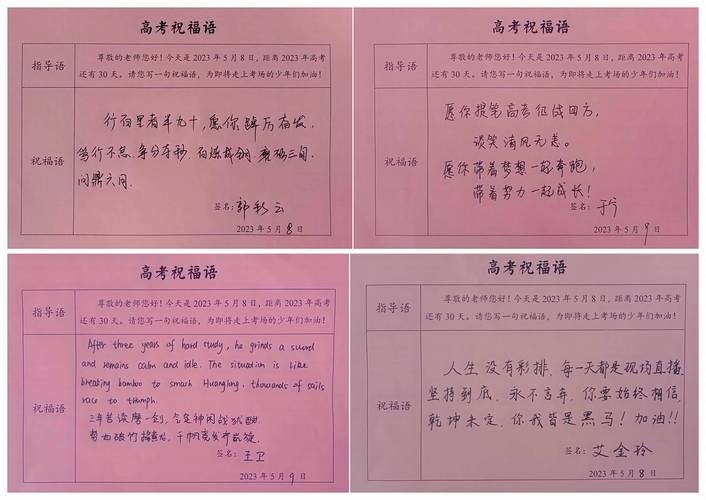 高考祝福语
指导语
尊敬的老师您好！今天是 2023 年 5 月 8 日，距离 2023 年高考
还有 30 天。请您写一句祝福语，为即将走上考场的少年们加油！
祝福语
行百里者半九十，愿你踔厉奋发，
笃行不怠，争分夺秒，百炼成钢，鏖战三旬，
问鼎六月。
签名：郭彩云
2023 年 5 月 8 日
高考祝福语
指导语
尊敬的老师您好！今天是 2023 年 5 月 8 日，距离 2023 年高考
还有 30 天。请您写一句祝福语，为即将走上考场的少年们加油！
祝福语
愿你提笔高考征战四方，
谈笑清风无恙。
愿你带着梦想一起奔跑，
带着努力一起成长！
签名：于
2023 年 5 月 9 日
高考祝福语
指导语
尊敬的老师您好！今天是 2023 年 5 月 8 日，距离 2023 年高考
还有 30 天。请您写一句祝福语，为即将走上考场的少年们加油！
祝福语
After three years of hard study, he grinds a sword
and remains calm and idle. The situation is like
breaking bamboo to smash Huanglong, thousands of sails
race to triumph.
三年苦读磨一剑，气定神闲战犹酣
势如破竹捣黄龙，千帆竞发齐凯旋。
签名：王卫
2023 年 5 月 9 日
高考祝福语
指导语
尊敬的老师您好！今天是 2023 年 5 月 8 日，距离 2023 年高考
还有 30 天。请您写一句祝福语，为即将走上考场的少年们加油！
祝福语
人生没有彩排，每一天都是现场直播，
坚持到底，永不言弃，你要始终相信，
乾坤未定，你我皆是黑马！加油!!
签名：艾金玲
2023 年 5 月 8 日